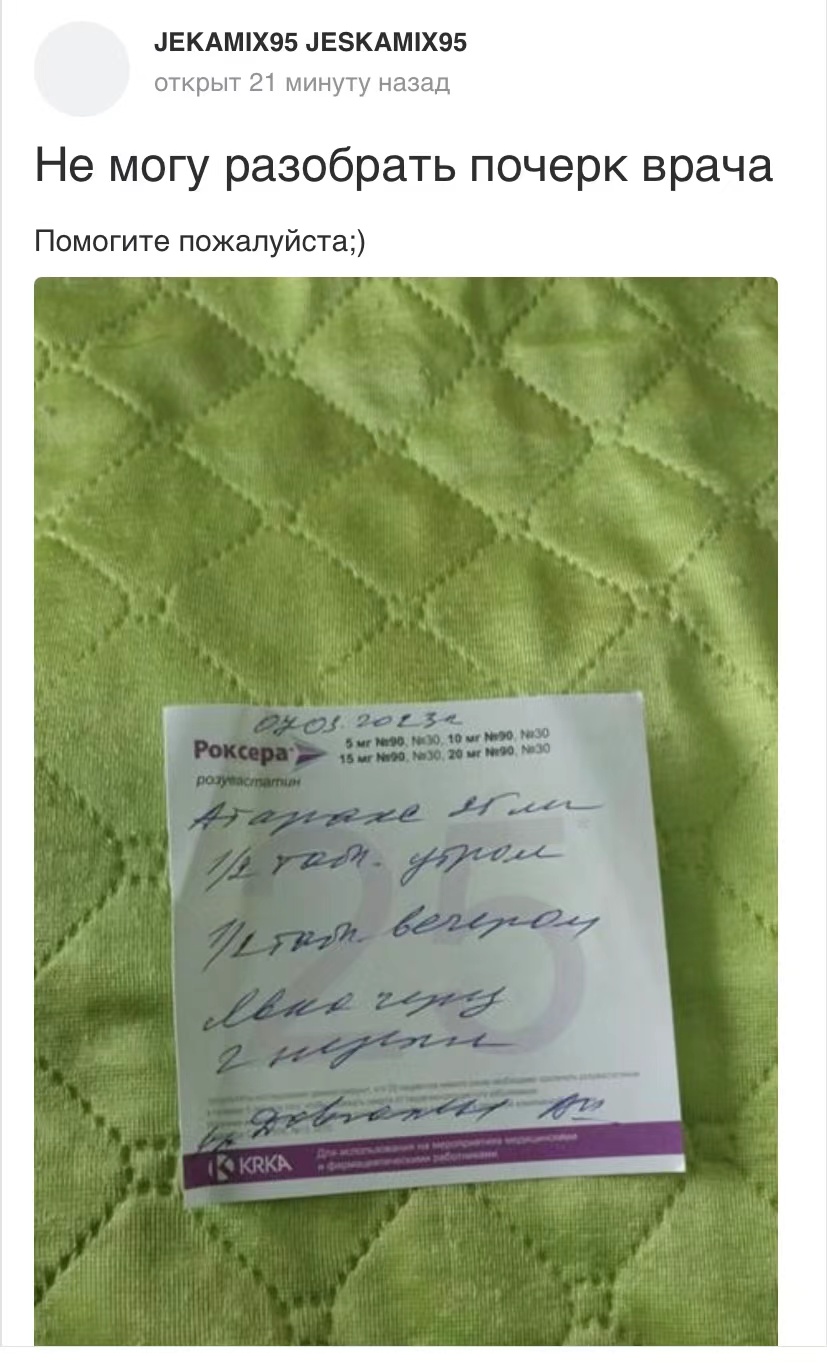 JEKAMIX95 JESKAMIX95
открыт 21 минуту назад
Не могу разобрать почерк врача
Помогите пожалуйста;)
Роксера
5 мг №90, №30, 10 мг №90, №30
15 мг №90, №30, 20 мг №90, №30
розувастатин
25
Атаракс 25 мг
1/2 табл. утром
1/2 табл. вечером
Явка через
2 недели
KRKA
Для использования на мероприятиях медицинскими
и фармацевтическими работниками